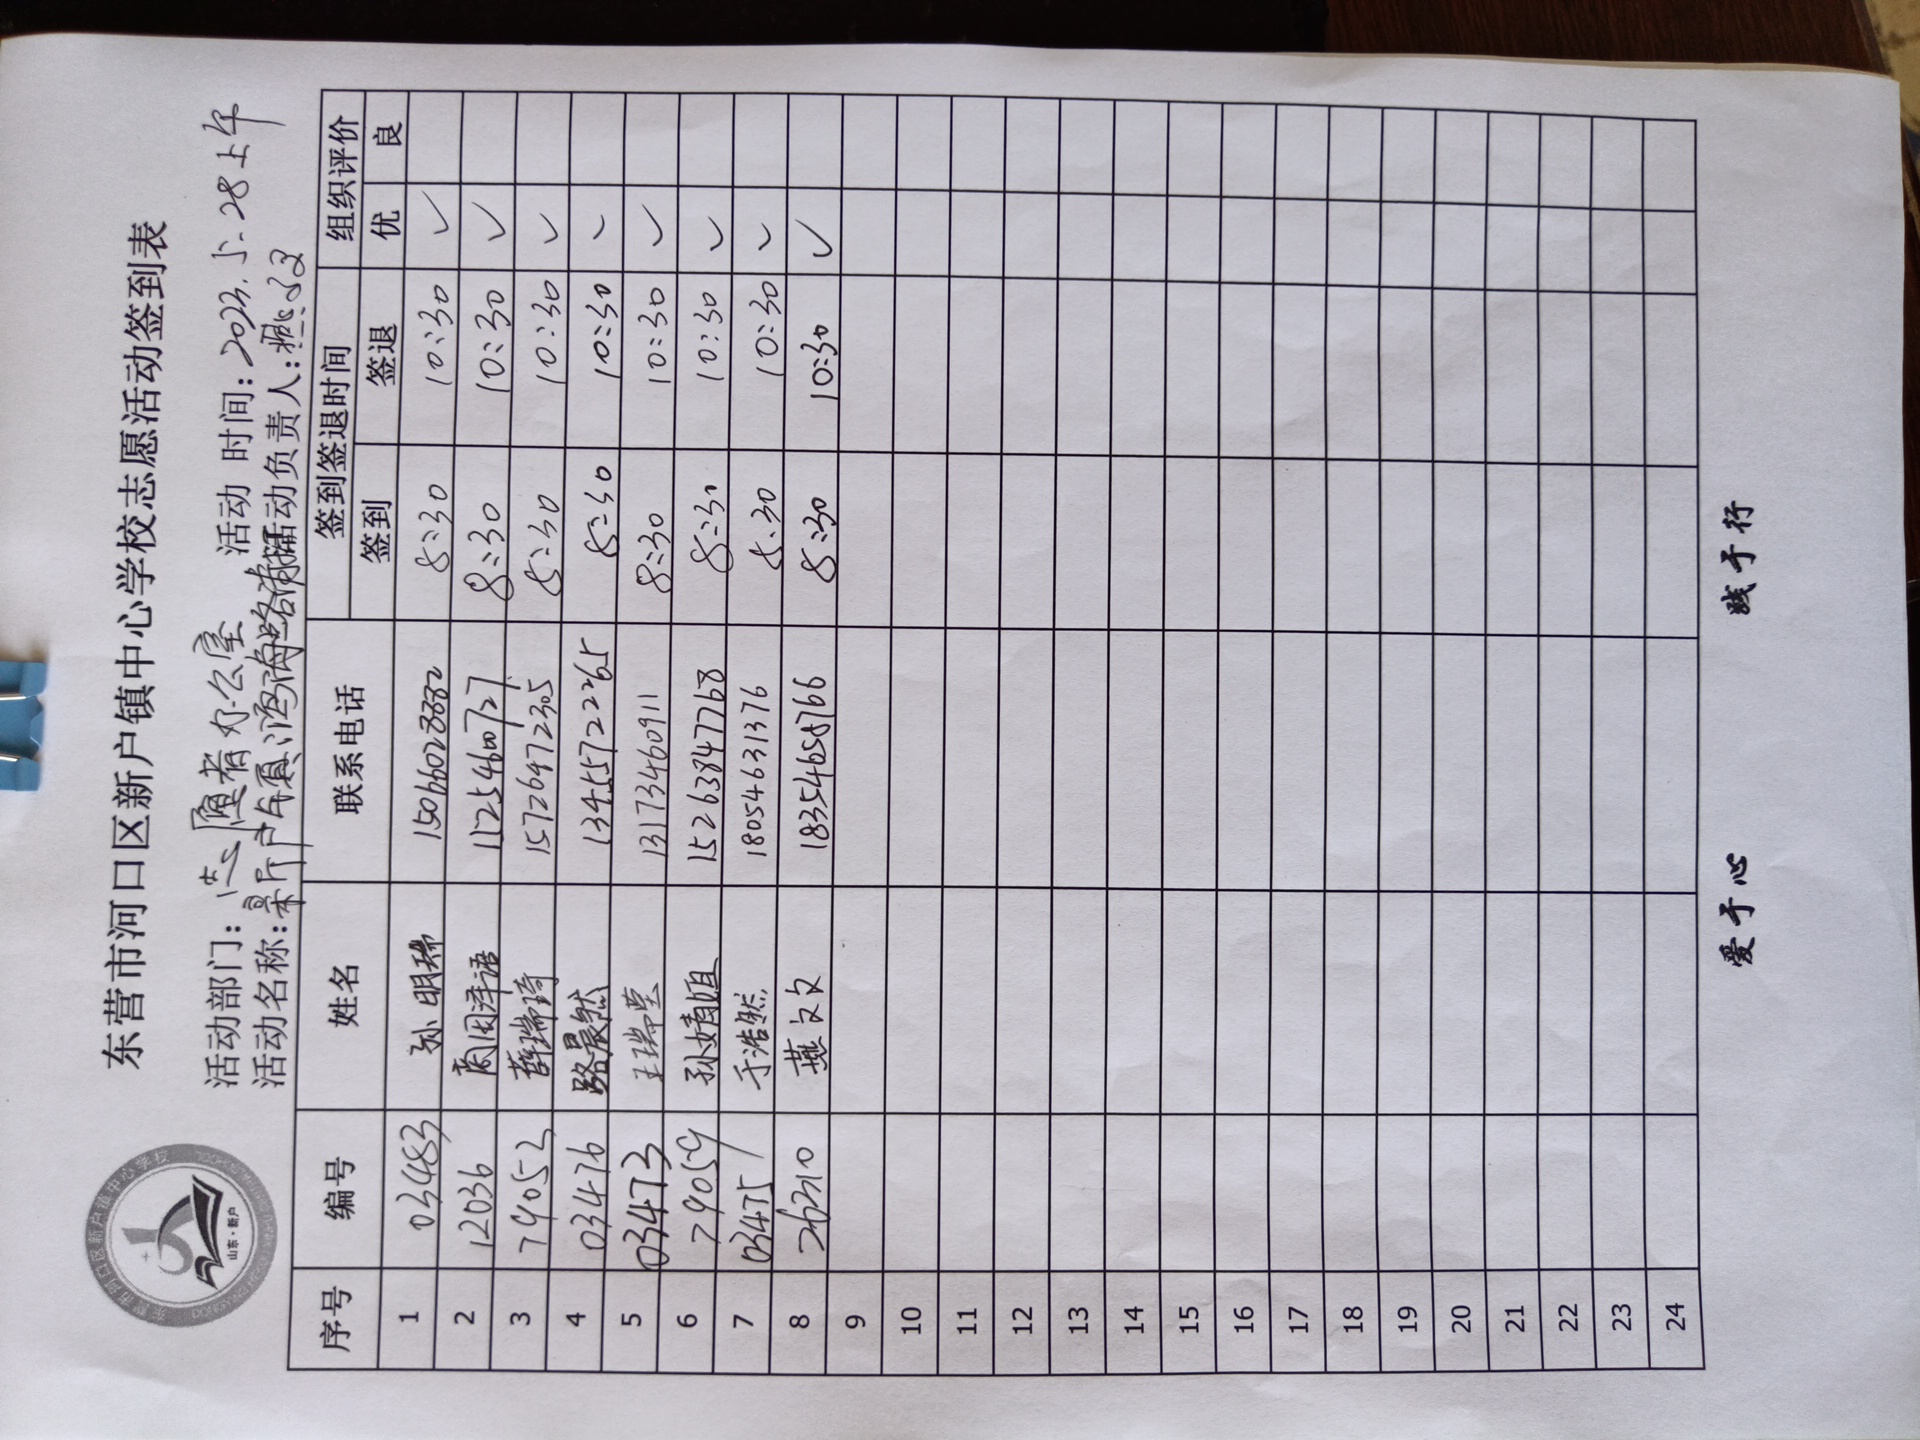 东营市河口区新户镇中心学校志愿活动签到表
活动部门：志愿者办公室 活动 时间：2023.5.28上午
活动名称：新户镇 活动负责人：燕文
序号 编号 姓名 联系电话 签到签退时间 组织评价
签到 签退 优 良
1 03483 孙明瑞 15066028882 8:30 10:30 ✓
2 12036 周雨泽语 8:30 10:30 ✓
3 79052 薛瑞琦 15726972305 8:30 10:30 ✓
4 03476 路晨然 13455722265 8:30 10:30 ✓
5 03473 王瑞莹 13173460911 8:30 10:30 ✓
6 79059 孙婧姐 15263847768 8:30 10:30 ✓
7 03475 于浩然 18054631376 8:30 10:30 ✓
8 26310 燕文文 18354658766 8:30 10:30 ✓
9
10
11
12
13
14
15
16
17
18
19
20
21
22
23
24
爱于心 践于行
东营市河口区新户镇中心学校
山东·新户